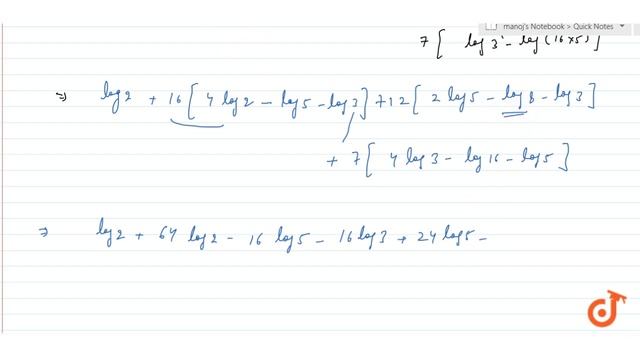 manoj's Notebook > Quick Notes
7 [ log 3⁴ - log (16×5) ]
⇒ log 2 + 16 [ 4 log 2 - log 5 - log 3 ] + 12 [ 2 log 5 - log 8 - log 3 ]
+ 7 [ 4 log 3 - log 16 - log 5 ]
⇒ log 2 + 64 log 2 - 16 log 5 - 16 log 3 + 24 log 5 -